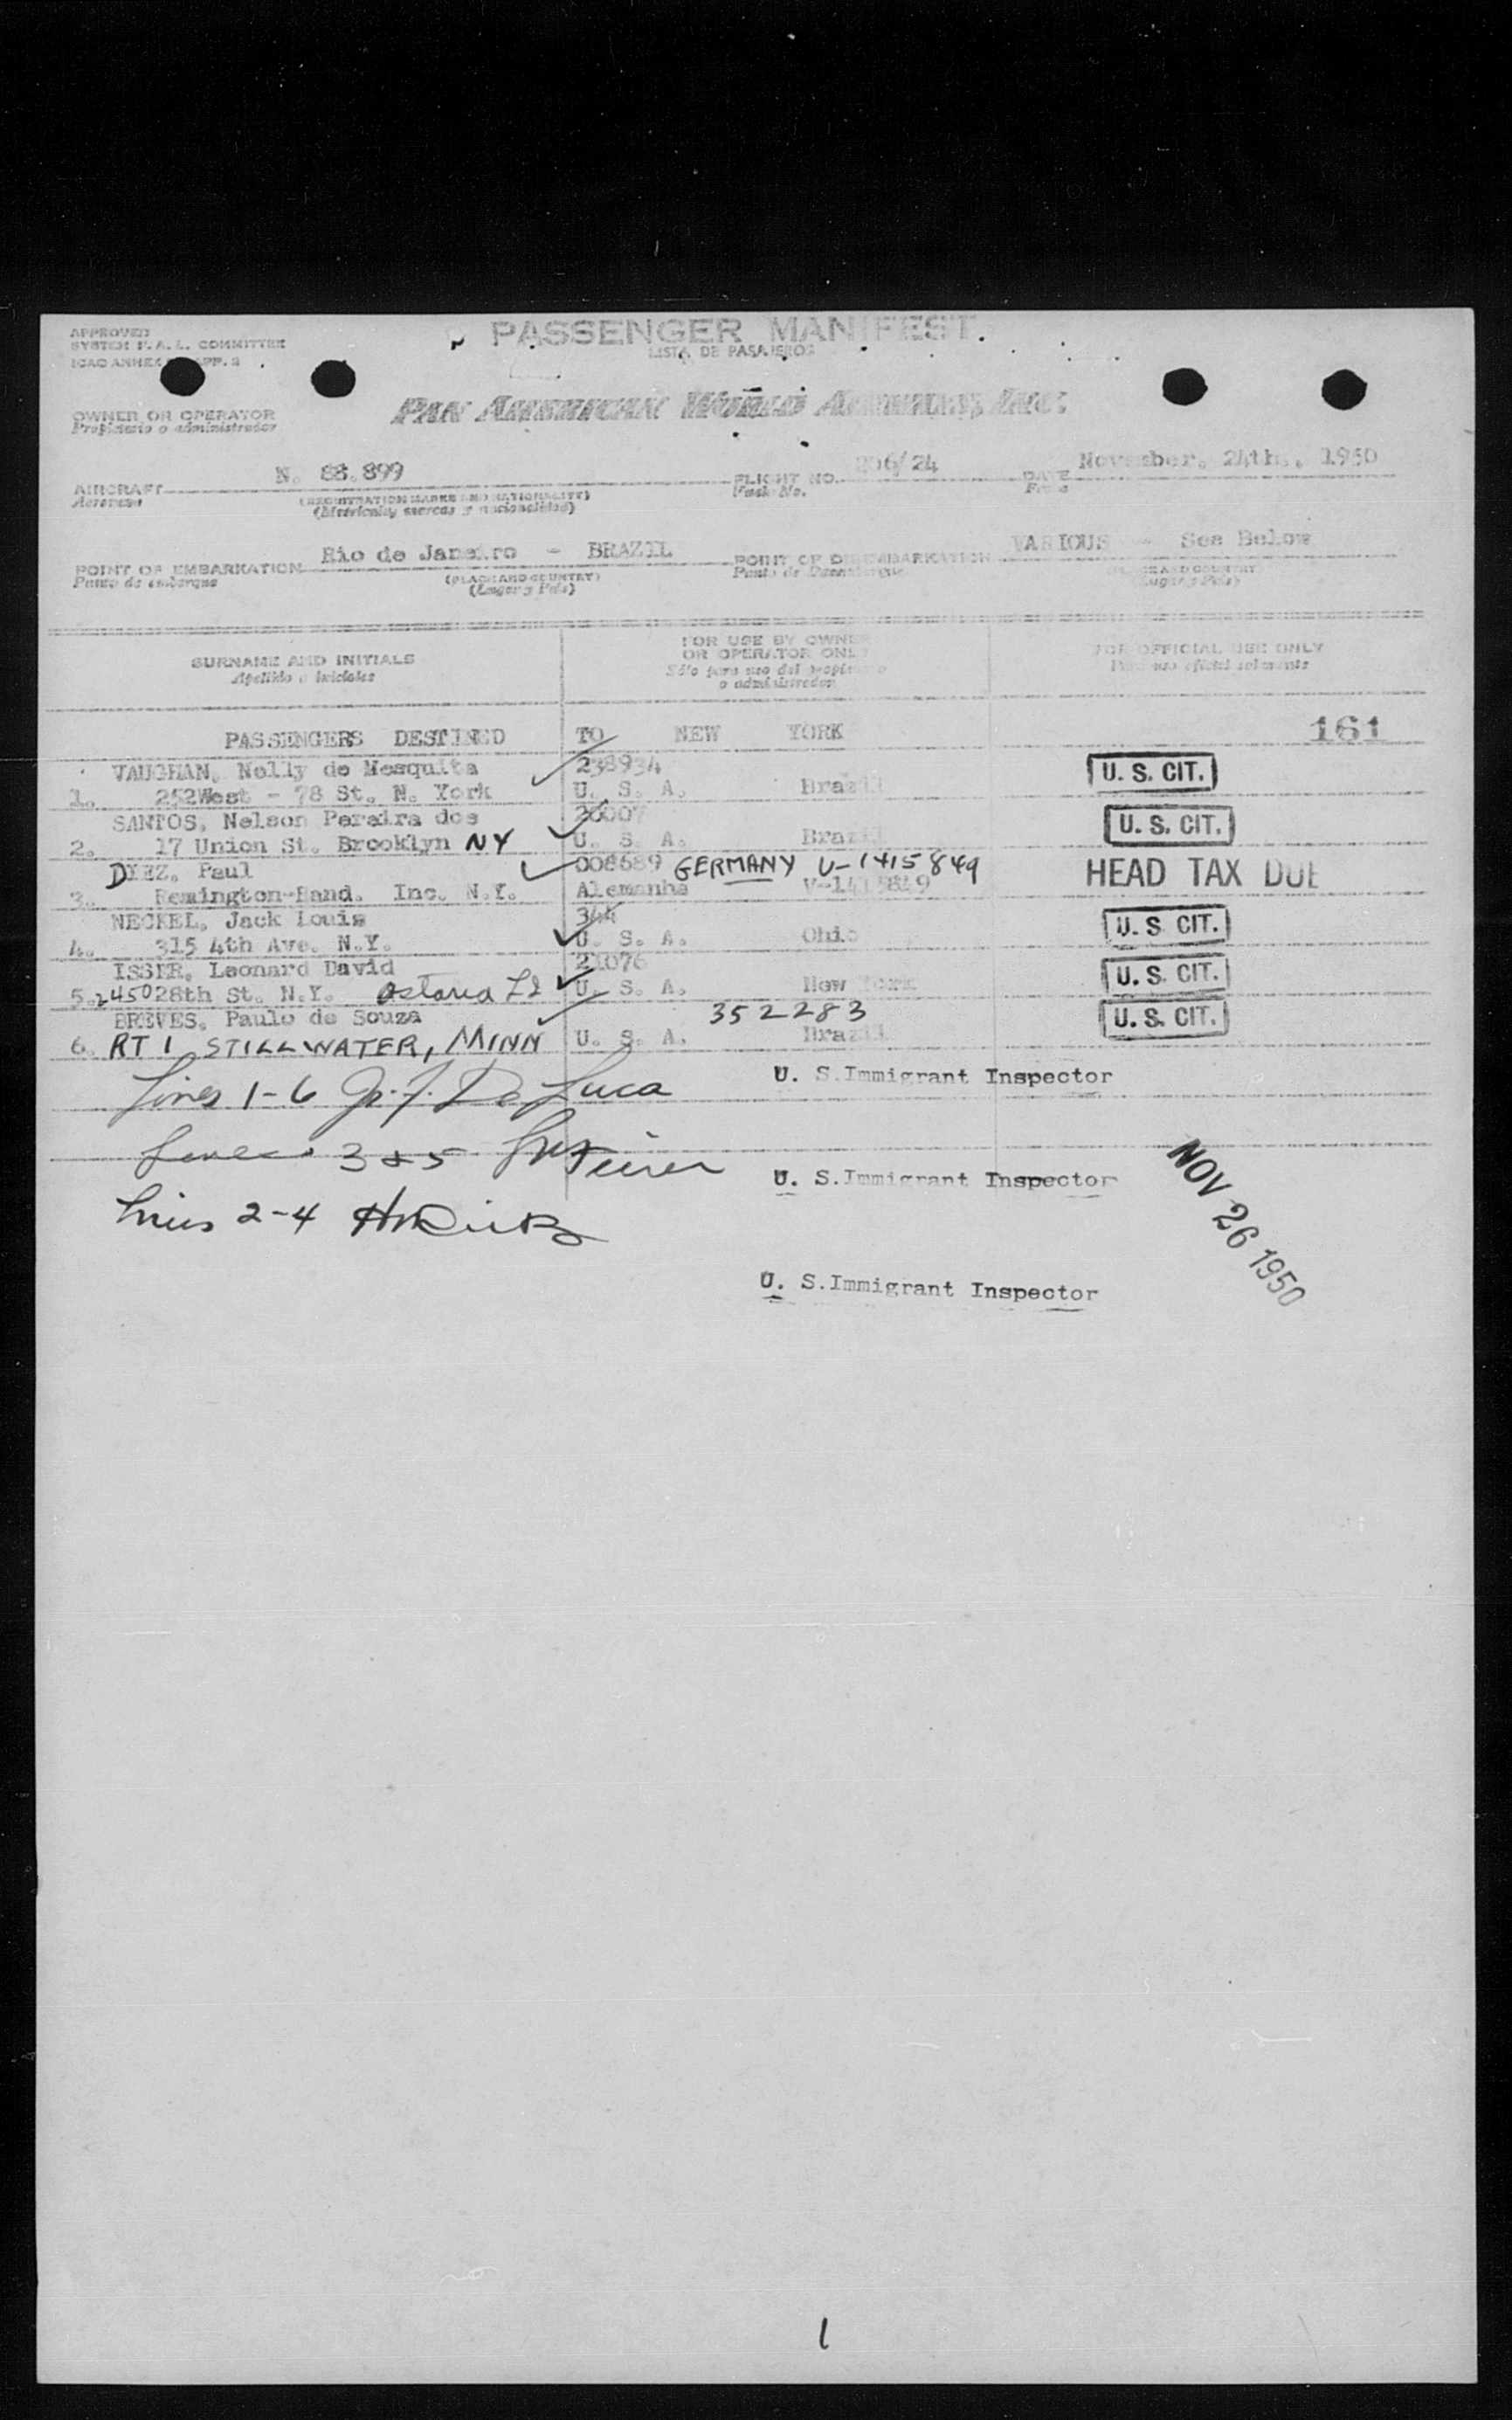 APPROVED
SYSTEM F. A. L. COMMITTEE
ICAO ANNEX APP. 2
PASSENGER MANIFEST
LISTA DE PASAJEROS
OWNER OR OPERATOR
Propietario o administrador
PAN AMERICAN WORLD AIRWAYS, INC.
AIRCRAFT N. 88.899
Aeronave
(REGISTRATION MARKS AND NATIONALITY)
(Matrícula, marcas y nacionalidad)
FLIGHT NO. 206/24
Vuelo No.
DATE November. 24th., 1950
Fecha
POINT OF EMBARKATION Rio de Janeiro - BRAZIL
Punto de embarque
(PLACE AND COUNTRY)
(Lugar y País)
POINT OF DISEMBARKATION VARIOUS - See Below
Punto de Desembarque
(PLACE AND COUNTRY)
(Lugar y País)
SURNAME AND INITIALS
Apellido e iniciales
FOR USE BY OWNER
OR OPERATOR ONLY
Sólo para uso del propietario
o administrador
FOR OFFICIAL USE ONLY
Para uso oficial solamente
PASSENGERS DESTINED TO NEW YORK 161
VAUGHAN, Nelly de Mesquita 238934 U. S. CIT.
1. 252West - 78 St. N. York U. S. A. Brazil
SANTOS, Nelson Pereira dos 20007 U. S. CIT.
2. 17 Union St. Brooklyn NY U. S. A. Brazil
DYEZ, Paul 008689 GERMANY V-1415849 HEAD TAX DUE
3. Remington-Rand. Inc. N.Y. Alemanha V-1415849
NECKEL, Jack Louis 344 U. S. CIT.
4. 315 4th Ave. N.Y. U. S. A. Ohio
ISSER, Leonard David 21076 U. S. CIT.
5. 2450 28th St. N.Y. Astoria LI U. S. A. New York
BREVES, Paulo de Souza 352283 U. S. CIT.
6. RT 1 STILLWATER, MINN U. S. A. Brazil
Lines 1-6 De Luca U. S.Immigrant Inspector
Lines 3 & 5 U. S.Immigrant Inspector
NOV 26 1950
Lines 2-4
U. S.Immigrant Inspector
1